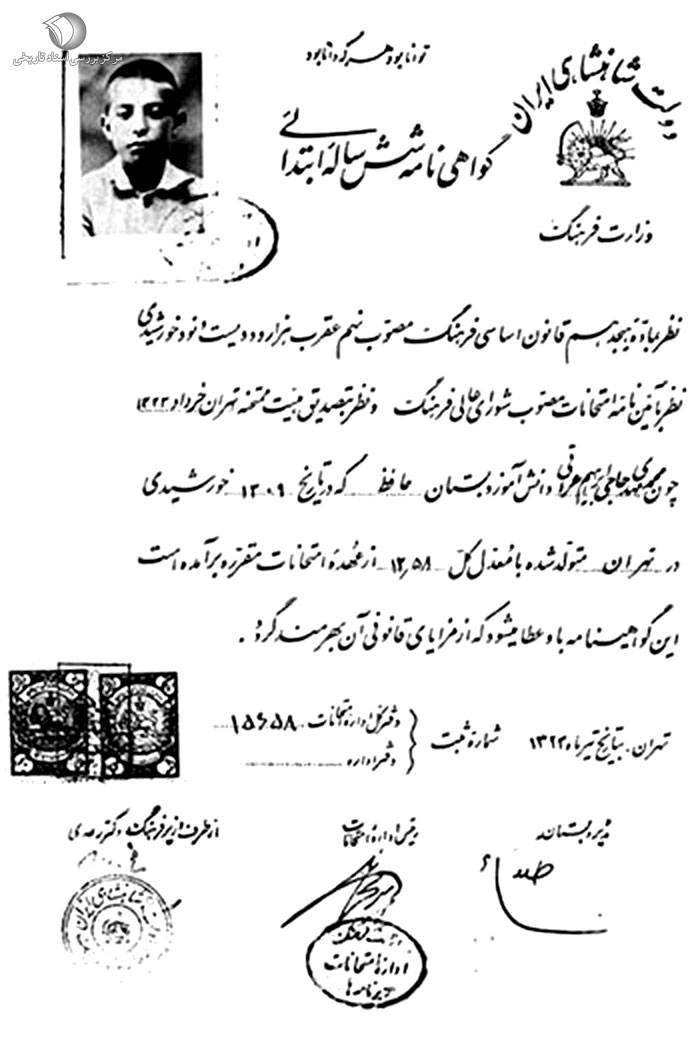 مرکز بررسی اسناد تاریخی
توانا بود هر که دانا بود
دولت شاهنشاهی ایران
گواهی نامه شش ساله ابتدائی
وزارت فرهنگ
نظر بماده هیجدهم قانون اساسی فرهنگ مصوب نهم عقرب هزار و دویست و نود خورشیدی
نظر بآئین نامه امتحانات مصوب شورای عالی فرهنگ و نظر بتصدیق هیئت ممتحنه تهران خرداد ۱۳۲۳
چون محمد مهدی حاجی ابراهیم عراقی دانش آموز دبستان حافظ که در تاریخ ۱۳۰۹ خورشیدی
در تهران متولد شده با معدل کل ۱۲٫۵۸ از عهده امتحانات مقرره برآمده است
این گواهینامه باو عطا میشود که از مزایای قانونی آن بهره‌مند گردد.
تهران. بتاریخ تیرماه ۱۳۲۳ شماره ثبت
دفتر کل اداره امتحانات ۱۵۶۵۸
دفتر اداره
مدیر دبستان
رئیس اداره امتحانات
از طرف وزیر فرهنگ دکتر رعدی
دولت شاهنشاهی ایران
وزارت فرهنگ
اداره امتحانات
و برنامه‌ها